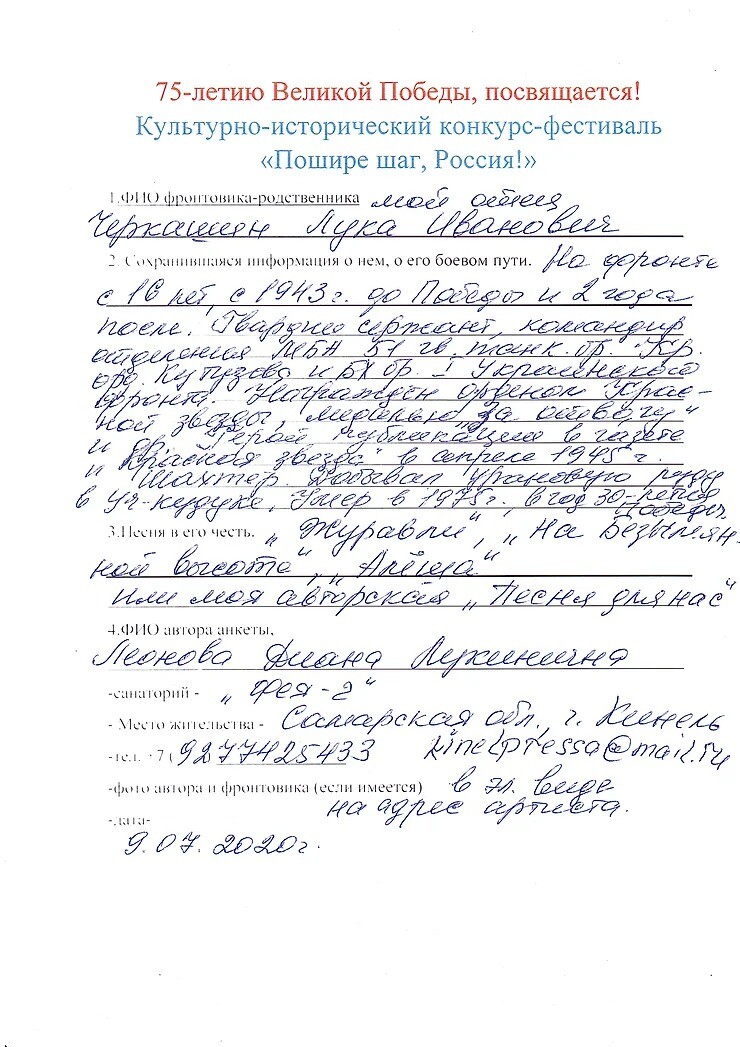 75-летию Великой Победы, посвящается!
Культурно-исторический конкурс-фестиваль
«Пошире шаг, Россия!»
1.ФИО фронтовика-родственника мой отец
Черкашин Лука Иванович
2. Сохранившаяся информация о нем, о его боевом пути. На фронте
с 16 лет, с 1943 г. до Победы и 2 года
после. Гвардии сержант, командир
отделения МБА 51 гв. танк. бр. Кр.
орд. Кутузова и БХ бр. I Украинского
фронта. Награжден орденом Крас-
ной звезды, медалью „За отвагу"
и др. Герой публикации в газете
„Красная звезда" в апреле 1945 г.
Шахтер. Добывал урановую руду
в Уч-кудуке. Умер в 1975г., в год 30-летия
Победы.
3.Песня в его честь. „Журавли", „На Безымян-
ной высоте", „Алёша"
или моя авторская „Песня для нас"
4.ФИО автора анкеты,
Леонова Диана Лукинична
-санаторий - „Фея-2"
- Место жительства - Самарская обл., г. Кинель
-тел. +7 ( 9277425433 kinelpressa@mail.ru
-фото автора и фронтовика (если имеется) в эл. виде
на адрес артиста.
-дата-
9.07.2020г.